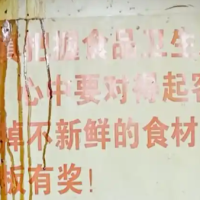 食品卫生
心中要对得起客
掉不新鲜的食材
板有奖！